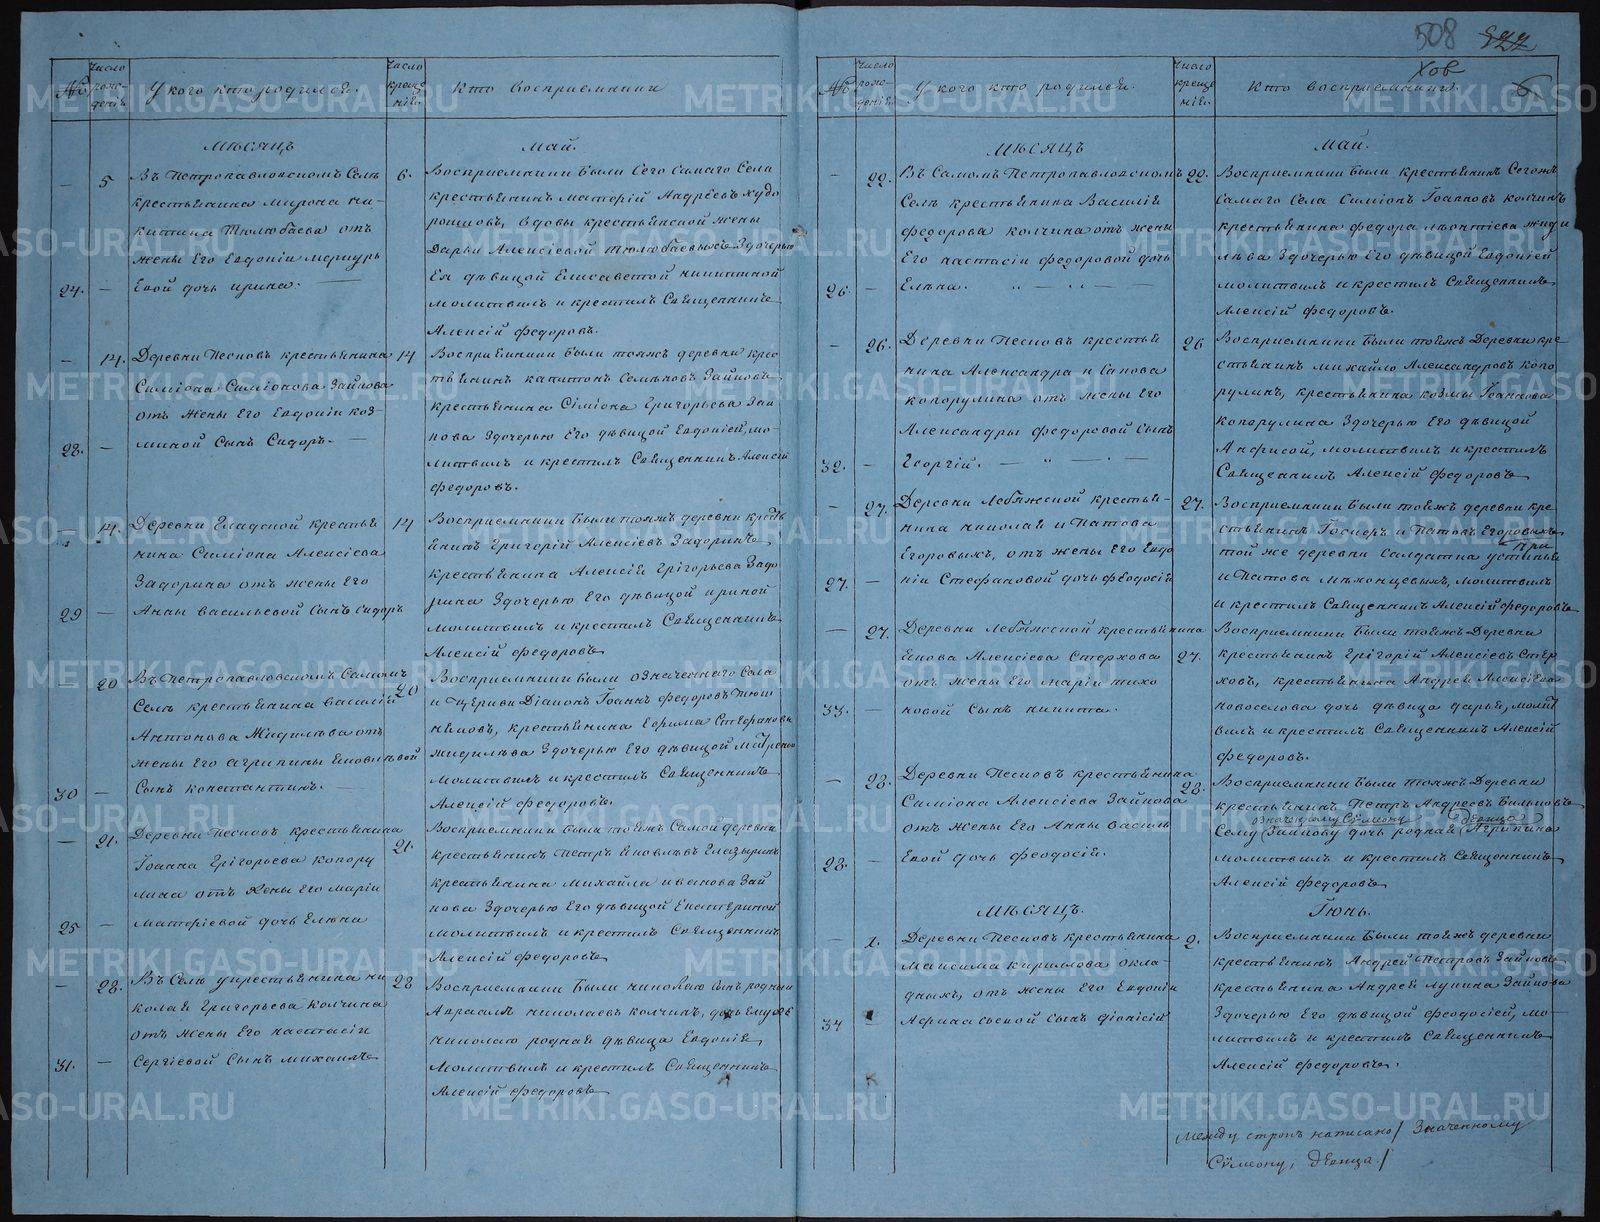 508
№ Число рожденія. У кого кто родился. Число крещенія. Кто восприемники
Мѣсяцъ Май.
5 Въ Петропавловскомъ Селѣ
крестьянина Мирона Ни-
китина Тюлюбаева отъ
жены Его Евдокіи Меркурь
24. — Евой дочь ирина.
6. Восприемники были Сего Самаго Села
крестьянинъ Матөій Андреевъ Худо
рошковъ, вдовы крестьянской жены
Дарьи Алексіевой Тюлюбаевыхъ Здочерью
Ея дѣвицой Елисаветой никитиной
молитвилъ и крестилъ Священникъ
Алексій федоровъ.
— 14. Деревни Песковъ крестьянина 14
Симіона Симіонова Зайкова
отъ жены Его Евдокіи коз-
28. — миной Сынъ Сидоръ. —
Восприемники были тояжъ деревни крес
тьянинъ капитонъ Семѣновъ Зайковъ
крестьянина Сіміона Григорьева Зай
кова Здочерью Его дѣвицой Евдокіей, мо-
литвилъ и крестилъ Священникъ Алексій
федоровъ.
— 14. Деревни Гладской крестья 14
нина Симіона Алексіева
Задорина отъ жены Его
29 — Анны васильевой Сынъ Сидоръ
Восприемники были тояжъ деревни крестъ
янинъ Григорій Алексіевъ Задоринъ
крестьянина Алексія Григорьева Задо
рина Здочерью Его дѣвицой ириной
молитвилъ и крестилъ Священникъ
Алексій федоровъ
— 20 Въ Петропавловскомъ Самомъ
Селѣ крестьянина василія 20
Антонова Жидилѣва отъ
жены Его агрипины яковлѣвой
30 — Сынъ константинъ.
Восприемники были означеннаго Села
и Церкви Діаконъ Іоаннъ федоровъ
крестьянина Ефима Стефанова
жидилѣва Здочерью Его дѣвицой Матреной
молитвилъ и крестилъ Священникъ
Алексій федоровъ.
— 21. Деревни Песковъ крестьянина
Іоанна Григорьева копору 21.
лина отъ жены Его Маріи
25 — матөіевой дочь Елѣна
Восприемники были тояжъ Самой деревни
крестьянинъ Петръ яковлѣвъ Глазыринъ
крестьянина Михайла иванова Зай
кова Здочерью Его дѣвицой Екатериной
молитвилъ и крестилъ Священникъ
Алексій федоровъ
— 28. Въ Селѣ у крестьянина ни 28
колая Григорьева колчина
отъ жены Его настасіи
31. — Сергіевой Сынъ михаилъ
Восприемники были николаю Сынъ родный
николаевъ колчинъ, дочь Емужъ
николаю родная дѣвица Евдокія
молитвилъ и крестилъ Священникъ
Алексій федоровъ
№ Число рожденія. У кого кто родился. Число крещенія. Кто восприемники.
Мѣсяцъ Май.
— 22. Въ Самомъ Петропавловскомъ 22.
Селѣ крестьянина Василія
федорова колчина отъ жены
Его настасіи федоровой дочь
26 — Елѣна.
Восприемники были крестьянинъ Сегожъ
Самаго Села Симіонъ Іоанновъ колчинъ
крестьянина федора леонтіева жиди
лѣва Здочерью Его дѣвицой Евдокіей
молитвилъ и крестилъ Священникъ
Алексій федоровъ.
— 26. Деревни Песковъ крестья 26
нина Александра
копорулина отъ жены Его
Александры федоровой Сынъ
32. — Георгій.
Восприемники были тояжъ Деревни кре
стьянинъ михайло Александровъ копо
рулинъ, крестьянина козмы Іоаннова
копорулина Здочерью Его дѣвицой
Анфисой, молитвилъ и крестилъ
Священникъ Алексій федоровъ
— 27. Деревни Лебяжской крестья- 27.
нина николая
Егоровыхъ, отъ жены Его Евдо
27. — кіи Стефановой дочь феодосія
Восприемники были тояжъ деревни кре
стьянинъ Егоровыхъ
при
той же деревни Солдатка устинья
молитвилъ
и крестилъ Священникъ Алексій федоровъ
— 27. Деревни Лебяжской крестьянина
якова Алексіева Стерхова 27.
отъ жены Его маріи тихо
33. — новой Сынъ никита.
Восприемники были тояжъ Деревни
крестьянинъ Григорій Алексіевъ Стер
ховъ, крестьянина Андрея Алексіева
новоселова дочь дѣвица дарья, молит
вилъ и крестилъ Священникъ Алексій
федоровъ.
— 28. Деревни Песковъ крестьянина
Симіона Алексіева Зайкова 28.
отъ жены Его Анны василь
28. — Евой дочь феодосія.
Восприемники были тояжъ Деревни
крестьянинъ Петръ Андреевъ
значенному Сѵмеону дѣвица
Сему Зайкову дочь родная Агрипина
молитвилъ и крестилъ Священникъ
Алексій федоровъ
Мѣсяцъ. Іюнь.
— 1. Деревни Песковъ крестьянина 2.
Максима кирилова окла-
дныхъ, отъ жены Его Евдокіи
34 — Афанасьевой Сынъ діонисій
Восприемники были тояжъ деревни
крестьянинъ Андрей Петровъ Зайковъ
крестьянина Андрея лукина Зайкова
Здочерью Его дѣвицой феодосіей, мо-
литвилъ и крестилъ Священникъ
Алексій федоровъ.
Между строкъ написано / Значенному
Сѵмеону, дѣвица. /
METRIKI.GASO-URAL.RU